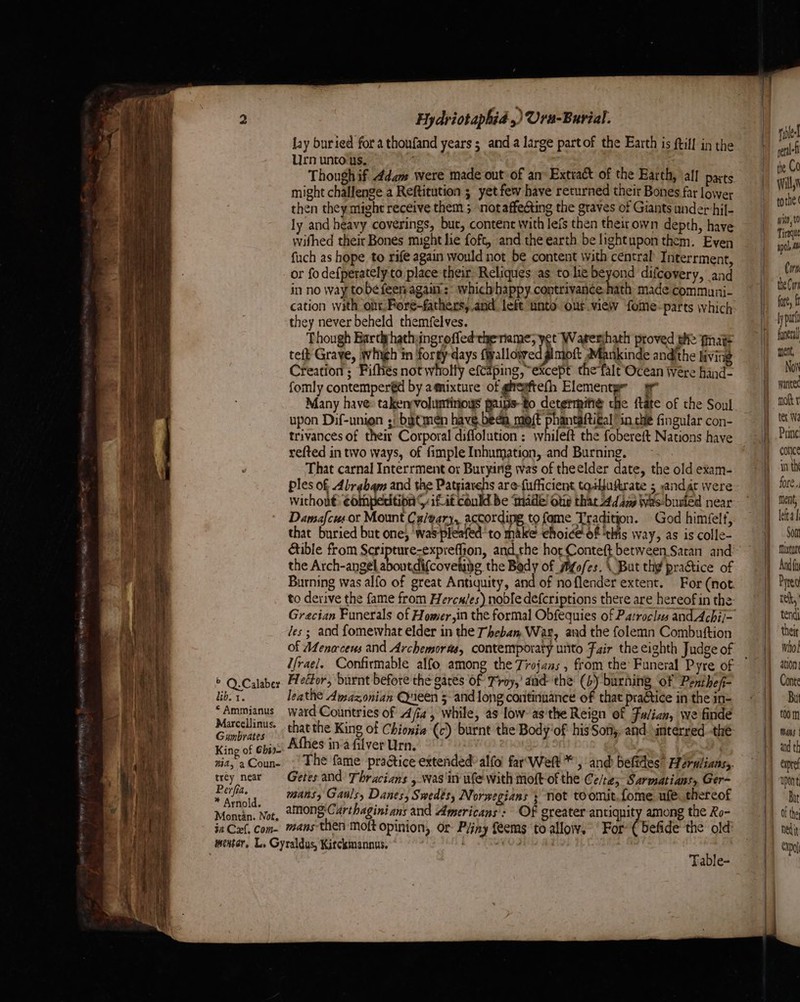 2
Hydriotaphia, Urn-Burial.
lay buried for a thouſand years; and a large part of the Earth is ſtill in the
Urn unto us.
Though if Adam were made out of an Extract of the Earth, all parts
might challenge a Reſtitution; yet few have returned their Bones far lower
then they might receive them; not affecting the graves of Giants under hil-
ly and heavy coverings, but, content with leſs then their own depth, have
wiſhed their Bones might lie ſoft, and the earth be light upon them. Even
ſuch as hope to riſe again would not be content with central Interrment,
or ſo deſperately to place their Reliques as to lie beyond diſcovery, and
in no way to be ſeen again: which happy contrivance hath made communi-
cation with our Fore-fathers, and left unto our view ſome parts which
they never beheld themſelves.
Though Earth hath ingroſſed the name, yet Water hath proved the ſmar-
teſt Grave, which in forty days ſwallowed almoſt Mankinde and the living
Creation; Fiſhes not wholly eſcaping, except the ſalt Ocean were hand-
ſomly contempered by a mixture of the freſh Element
Many have taken voluminous pains to determine the ſtate of the Soul
upon Diſ-union; but men have been moſt phantaſtical in the ſingular con-
trivances of their Corporal diſſolution: whileſt the ſobereſt Nations have
reſted in two ways, of ſimple Inhumation, and Burning.
That carnal Interrment or Burying was of the elder date, the old exam-
ples of Abraham and the Patriarchs are ſufficient to illuſtrate; and at were
without competition, if it could be made out that Adam was buried near
Damaſcus or Mount Calvary, according to ſome Tradition. God himſelf,
that buried but one, was pleaſed to make choice of this way, as is colle-
ctible from Scripture-expreſſion, and the hot Conteſt between Satan and
the Arch-angel about diſcovering the Body of Moſes. But the practice of
Burning was alſo of great Antiquity, and of no ſlender extent. For (not
to derive the ſame from Hercules) noble deſcriptions there are hereof in the
Grecian Funerals of Homer, in the formal Obſequies of Patroclus and Achil-
les; and ſomewhat elder in the Theban War, and the ſolemn Combuſtion
of Menæceus and Archemorus, contemporary unto Jair the eighth Judge of
Iſrael. Confirmable alſo among the Trojans, from the Funeral Pyre of
Hector, burnt before the gates of Troy, and the (b) burning of Pentheſi-
leathe Amazonian Queen; and long continuance of that practice in the in-
ward Countries of Aſia, while, as low as the Reign of Julian, we finde
that the King of Chionia (c) burnt the Body of his Son, and interred the
Aſhes in a ſilver Urn.
The ſame practice extended alſo far Weſt *, and beſides Herulians,
Getes and Thracians, was in uſe with moſt of the Celtæ, Sarmatians, Ger-
mans, Gauls, Danes, Swedes, Norwegians; not to omit ſome uſe thereof
among Carthaginians and Americans: Of greater antiquity among the Ro-
mans then moſt opinion, or Pliny ſeems to allow. For (beſide the old
Table-
b Q. Calaber
lib. 1.
c Ammianus
Marcellinus.
Gumbrates
King of Chio-
nia, a Coun-
trey near
Perſia.
* Arnold.
Montan. Not.
in Cæſ. Com-
mentar. L. Gyraldus, Kirckmannus.